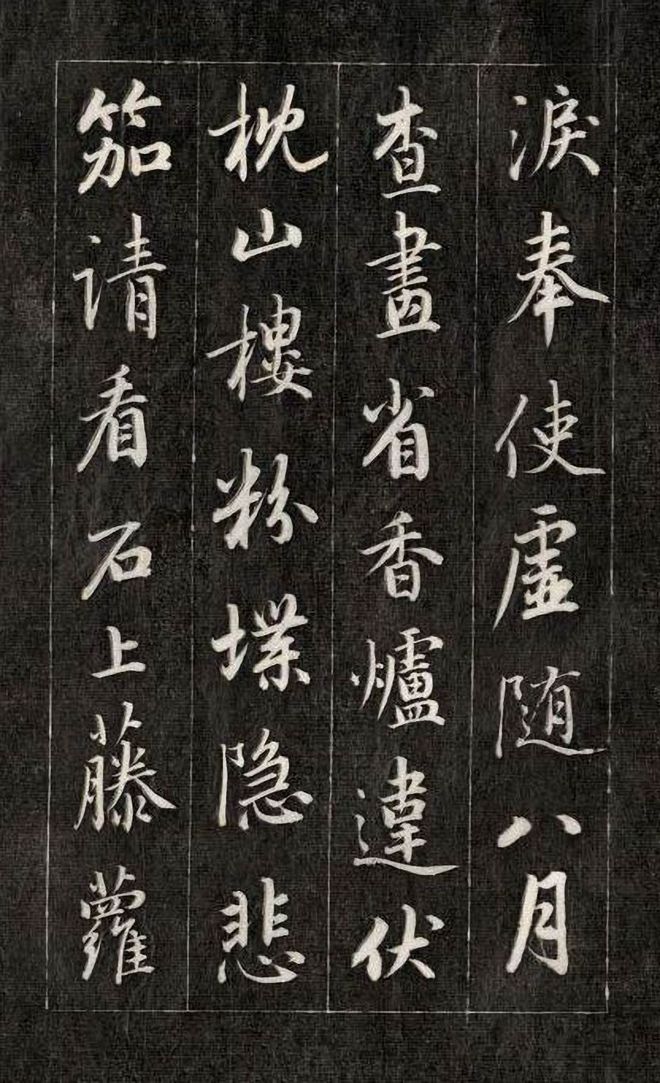 淚奉使虛随八月
查畫省香爐違伏
枕山樓粉堞隐悲
笳请看石上藤蘿